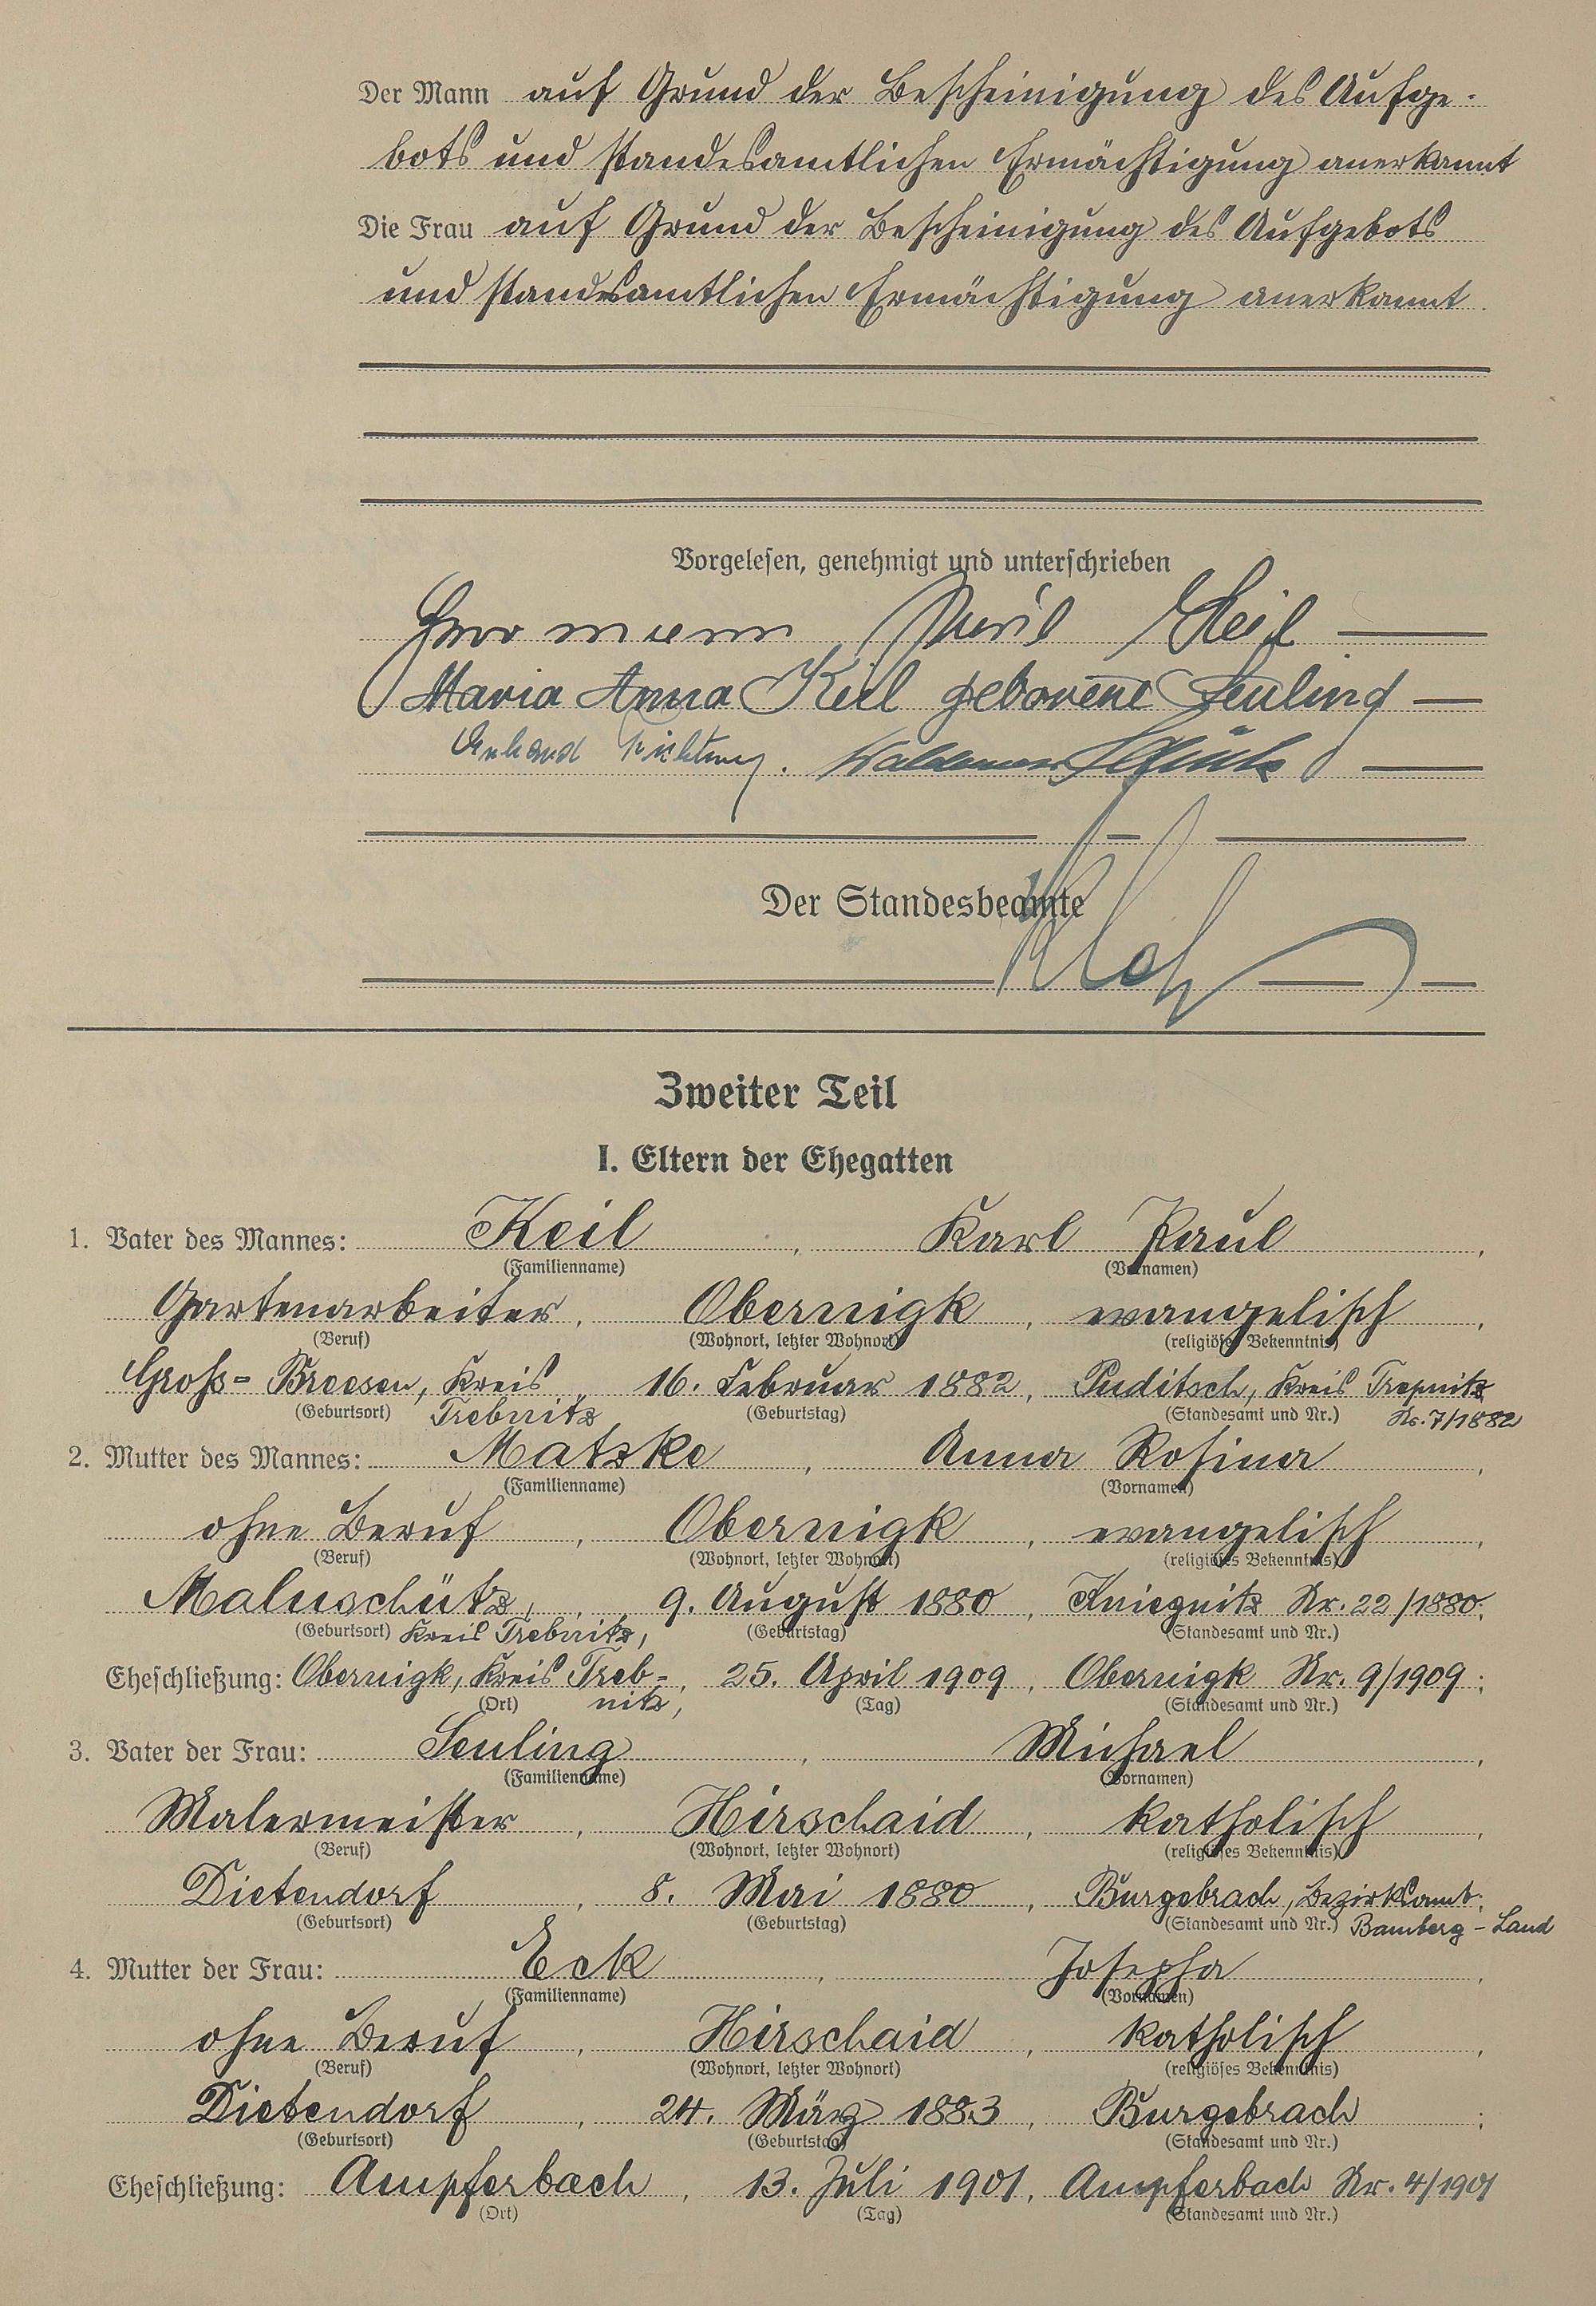 Der Mann auf Grund der Bescheinigung des Aufge-
bots und standesamtlichen Ermächtigung anerkannt
Die Frau auf Grund der Bescheinigung des Aufgebots
und standesamtlichen Ermächtigung anerkannt.
Vorgelesen, genehmigt und unterschrieben
Hermann Keil
Maria Anna Keil geborene Seuling
Waldemar
Der Standesbeamte
Zweiter Teil
I. Eltern der Ehegatten
1. Vater des Mannes: Keil, Karl Paul,
(Familienname) (Vornamen)
Gartenarbeiter, Obernigk, evangelisch,
(Beruf) (Wohnort, letzter Wohnort) (religiöses Bekenntnis)
Gross-Breesen, Kreis, 16. Februar 1882, Puditsch, Kreis Trepnitz
(Geburtsort) Trebnitz (Geburtstag) (Standesamt und Nr.) Nr. 7/1882
2. Mutter des Mannes: Matzke, Anna Rosina,
(Familienname) (Vornamen)
ohne Beruf, Obernigk, evangelisch,
(Beruf) (Wohnort, letzter Wohnort) (religiöses Bekenntnis)
Maluschütz, 9. August 1880, Kniegnitz Nr. 22/1880.
(Geburtsort) Kreis Trebnitz, (Geburtstag) (Standesamt und Nr.)
Eheschließung: Obernigk, Kreis Treb-, 25. April 1909, Obernigk Nr. 9/1909;
(Ort) nitz, (Tag) (Standesamt und Nr.)
3. Vater der Frau: Seuling, Michael,
(Familienname) (Vornamen)
Malermeister, Hirschaid, katholisch,
(Beruf) (Wohnort, letzter Wohnort) (religiöses Bekenntnis)
Dietendorf, 8. Mai 1880, Burgebrach, Bezirksamt;
(Geburtsort) (Geburtstag) (Standesamt und Nr.) Bamberg-Land
4. Mutter der Frau: Eck, Josepha,
(Familienname) (Vornamen)
ohne Beruf, Hirschaid, katholisch,
(Beruf) (Wohnort, letzter Wohnort) (religiöses Bekenntnis)
Dietendorf, 24. März 1883, Burgebrach;
(Geburtsort) (Geburtstag) (Standesamt und Nr.)
Eheschließung: Ampferbach, 13. Juli 1901, Ampferbach Nr. 4/1901
(Ort) (Tag) (Standesamt und Nr.)